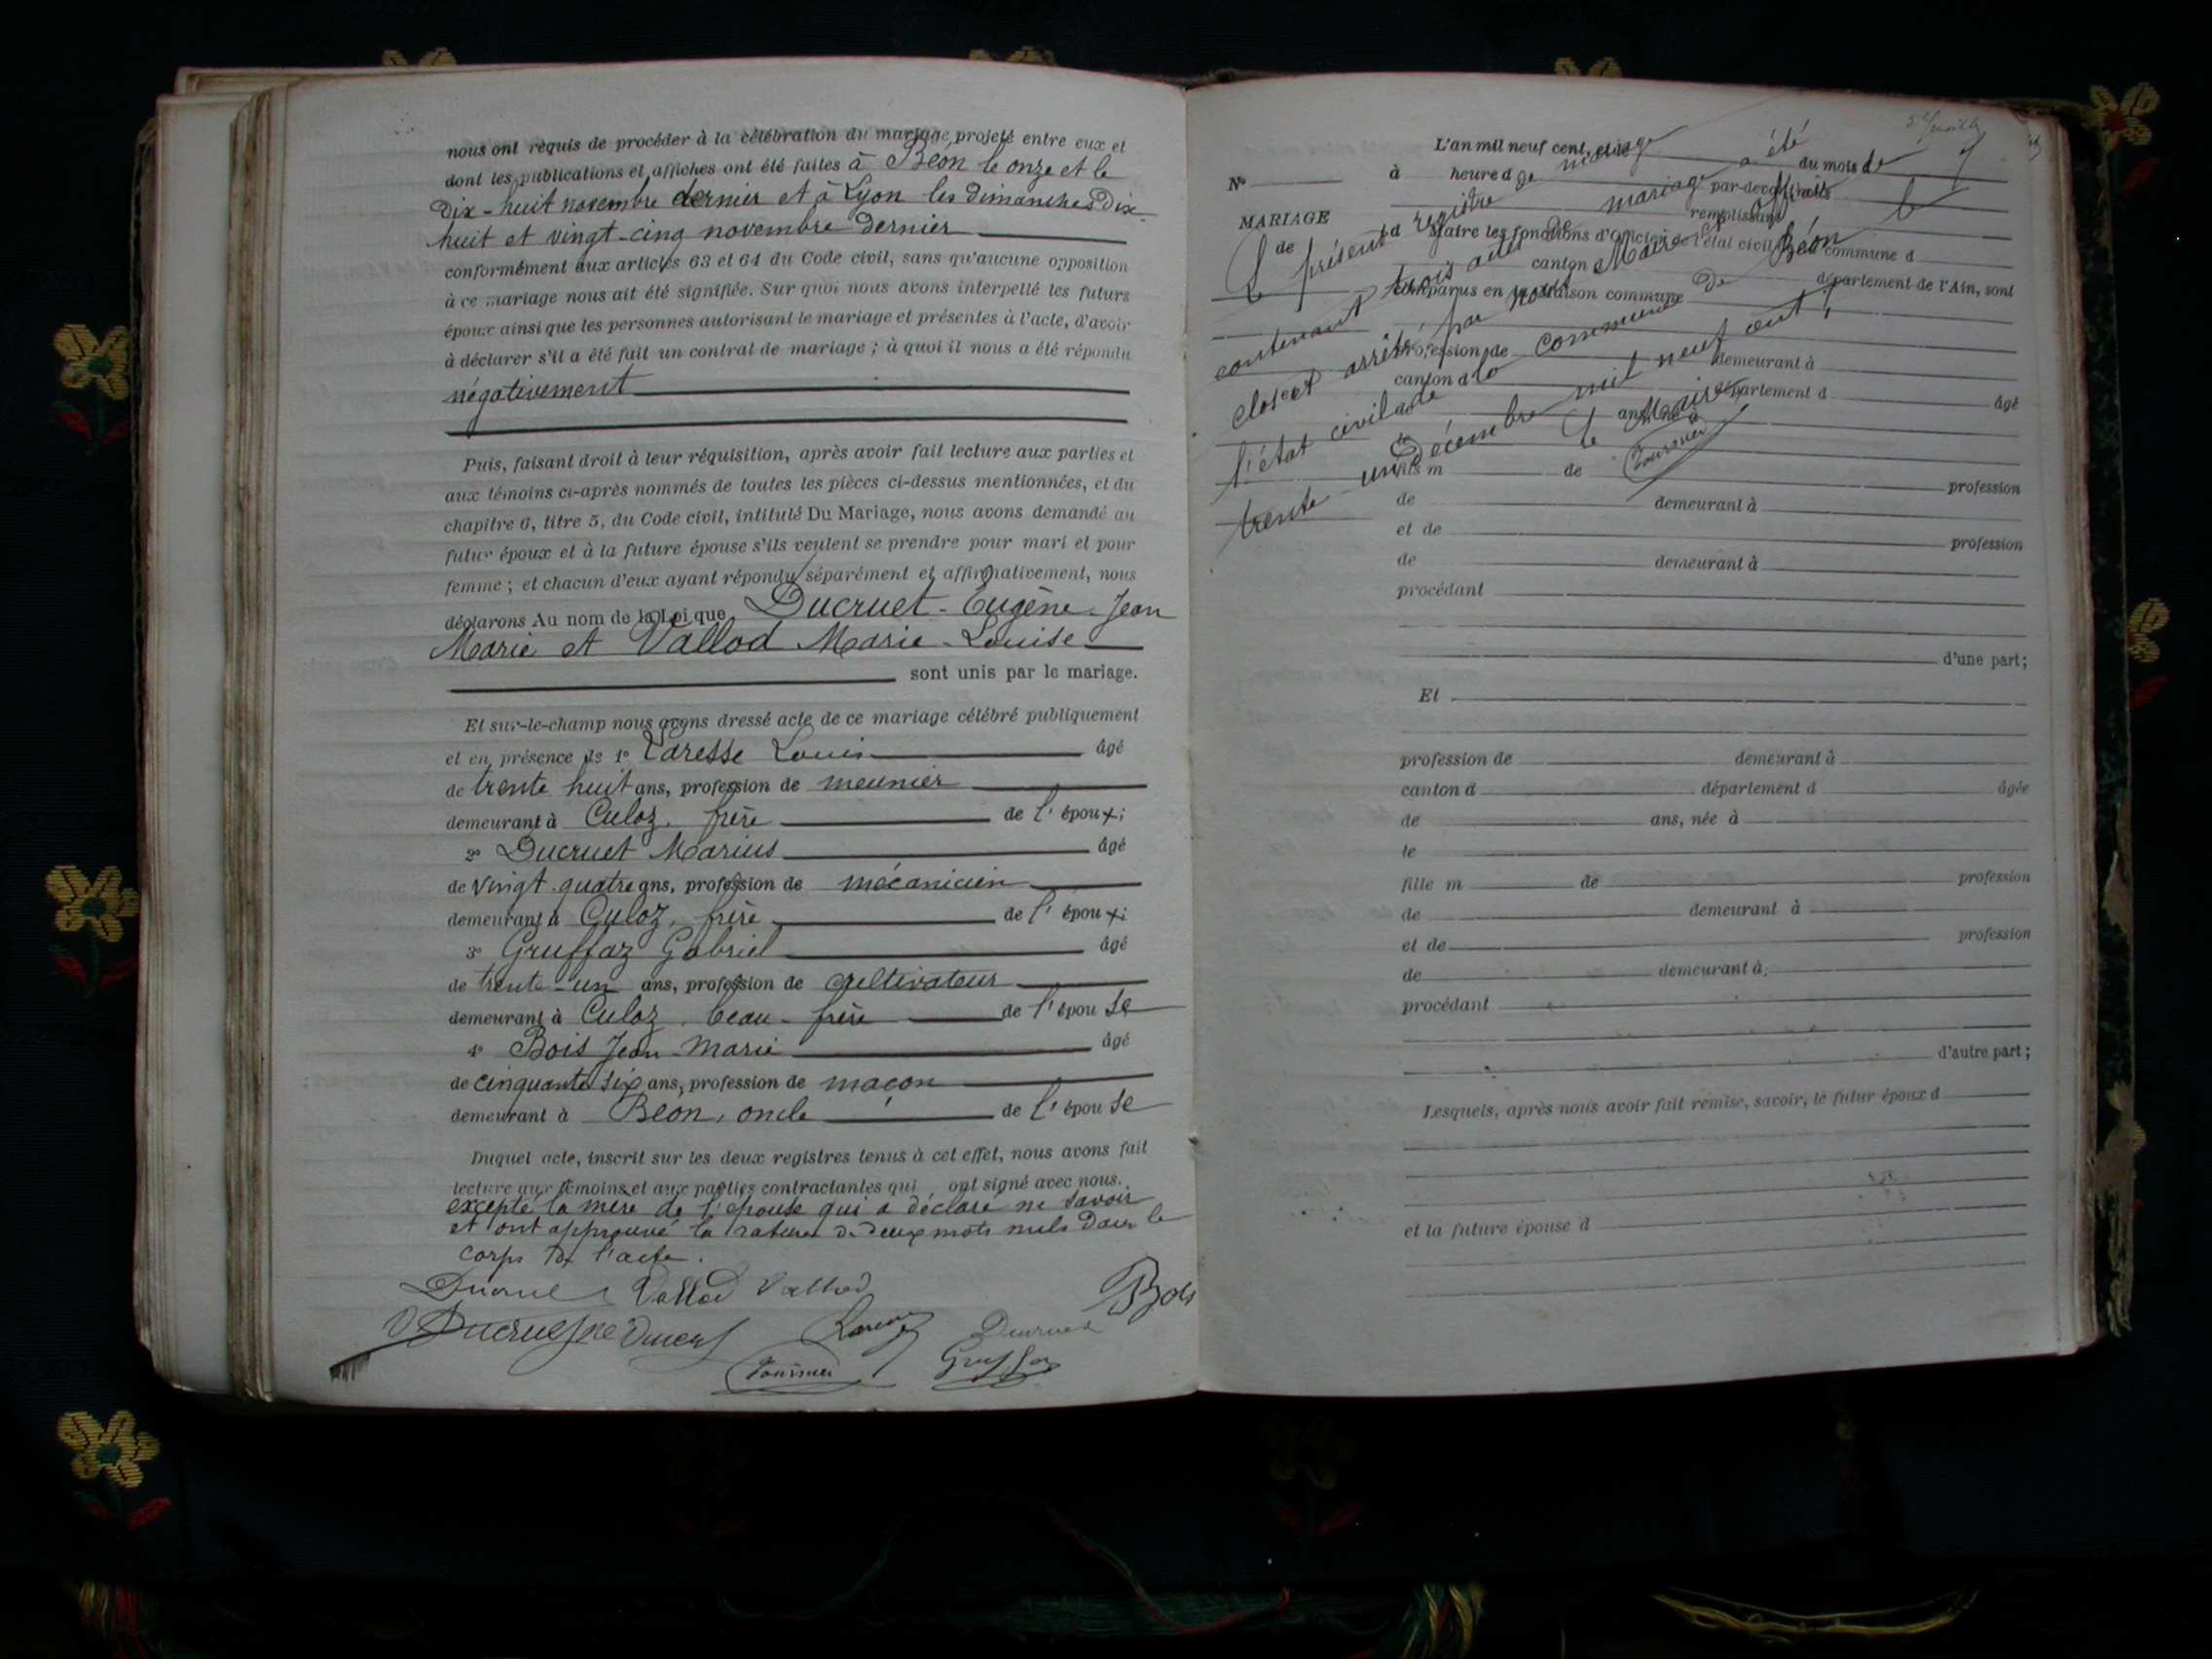 nous ont requis de procéder à la célébration du mariage projeté entre eux et
dont les publications et affiches ont été faites à Béon le onze et le
Dix-huit novembre dernier et à Lyon les dimanches Dix-
huit et vingt-cinq novembre dernier
conformément aux articles 63 et 64 du Code civil, sans qu'aucune opposition
à ce mariage nous ait été signifiée. Sur quoi nous avons interpellé les futurs
époux ainsi que les personnes autorisant le mariage et présentes à l'acte, d'avoir
à déclarer s'il a été fait un contrat de mariage ; à quoi il nous a été répondu
négativement
Puis, faisant droit à leur réquisition, après avoir fait lecture aux parties et
aux témoins ci-après nommés de toutes les pièces ci-dessus mentionnées, et du
chapitre 6, titre 5, du Code civil, intitulé Du Mariage, nous avons demandé au
futur époux et à la future épouse s'ils veulent se prendre pour mari et pour
femme ; et chacun d'eux ayant répondu séparément et affirmativement, nous
déclarons Au nom de la Loi que Ducruet-Eugène-Jean
Marie et Vallod Marie-Louise
sont unis par le mariage.
Et sur-le-champ nous avons dressé acte de ce mariage célébré publiquement
et en présence de 1° Louis âgé
de trente huit ans, profession de meunier
demeurant à Culoz, frère de l'époux ;
2° Ducruet Marius âgé
de vingt-quatre ans, profession de mécanicien
demeurant à Culoz, frère de l'époux ;
3° Gruffaz Gabriel âgé
de trente-un ans, profession de cultivateur
demeurant à Culoz, beau-frère de l'épouse
4° Bois Jean-Marie âgé
de cinquante six ans, profession de maçon
demeurant à Béon, oncle de l'épouse
Duquel acte, inscrit sur les deux registres tenus à cet effet, nous avons fait
lecture aux témoins et aux parties contractantes qui ont signé avec nous.
excepté la mère de l'épouse qui a déclaré ne savoir
et ont approuvé la rature de deux mots nuls dans le
corps de l'acte.
Vallod Vallod Bois
Ducruet
Fournier Gruffaz
L'an mil neuf cent, et le
N° à heure d du mois d
par-devant nous
MARIAGE remplissant
de d Maire les fonctions d'officier de l'état civil de la commune d
canton d
comparus en la maison commune département de l'Ain, sont
profession de demeurant à
canton d département d âgé
de ans, né à
le
fils m de profession
de demeurant à
et de profession
de demeurant à
procédant
d'une part ;
Et
profession de demeurant à
canton d département d âgée
de ans, née à
le
fille m de profession
de demeurant à
et de profession
de demeurant à
procédant
d'autre part ;
Lesquels, après nous avoir fait remise, savoir, le futur époux d
et la future épouse d
Le présent registre de mariage a été
contenant trois actes de mariage
clos et arrêté par nous Maire officier
l'état civil de la commune de Béon le
trente-un Décembre mil neuf cent,
Le Maire,
Fournier